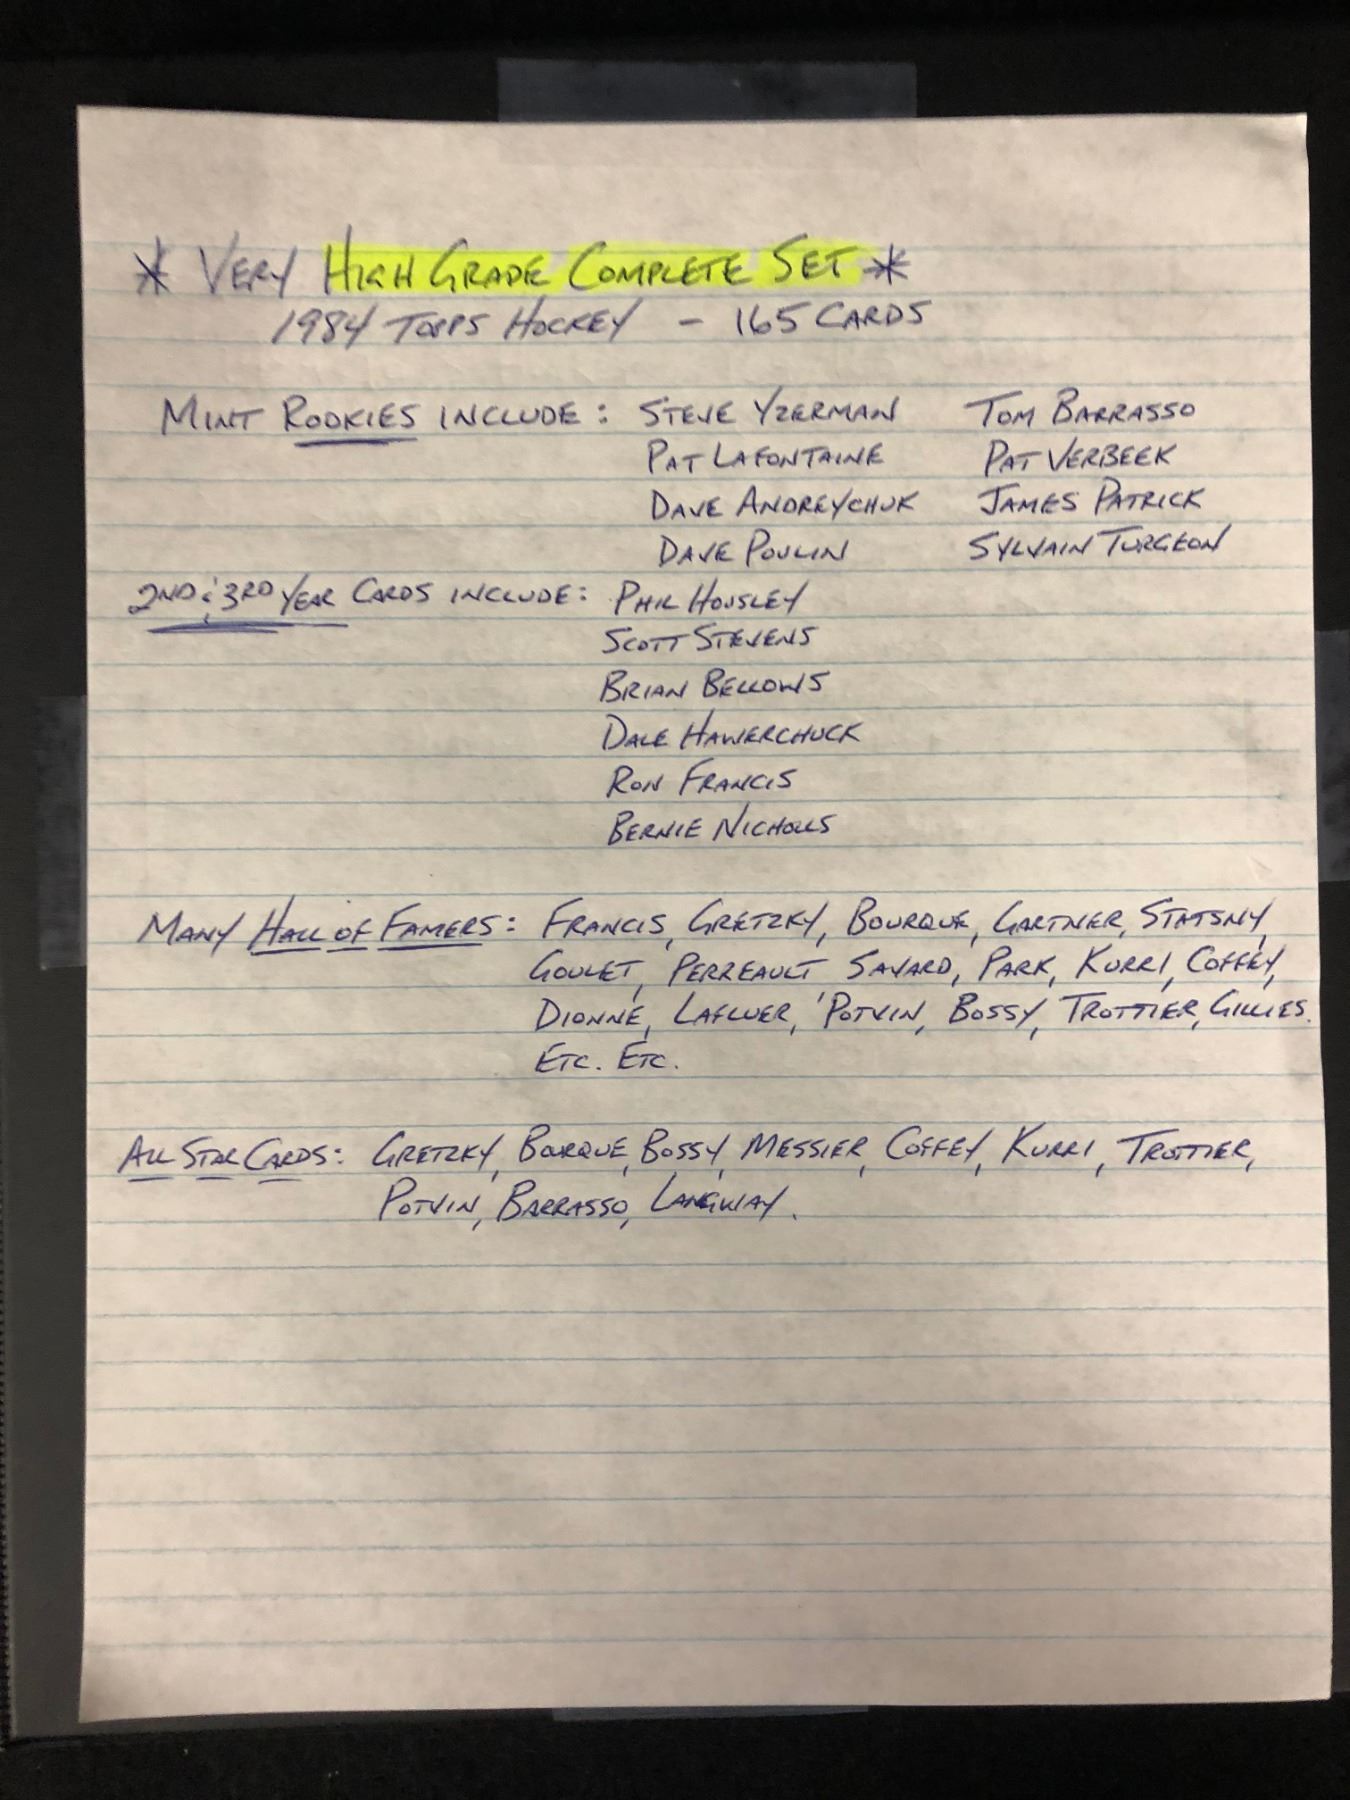 * VERY HIGH GRADE COMPLETE SET *
1984 TOPPS HOCKEY - 165 CARDS
MINT ROOKIES INCLUDE: STEVE YZERMAN TOM BARRASSO
PAT LAFONTAINE PAT VERBEEK
DAVE ANDREYCHUK JAMES PATRICK
DAVE POULIN SYLVAIN TURGEON
2ND & 3RD YEAR CARDS INCLUDE: PHIL HOUSLEY
SCOTT STEVENS
BRIAN BELLOWS
DALE HAWERCHUCK
RON FRANCIS
BERNIE NICHOLLS
MANY HALL OF FAMERS: FRANCIS, GRETZKY, BOURQUE, GARTNER, STATSNY,
GOULET, PERREAULT SAVARD, PARK, KURRI, COFFEY,
DIONNE, LAFLUER, POTVIN, BOSSY, TROTTIER, GILLIES.
ETC. ETC.
ALL STAR CARDS: GRETZKY, BOURQUE, BOSSY, MESSIER, COFFEY, KURRI, TROTTIER,
POTVIN, BARRASSO, LANGWAY.